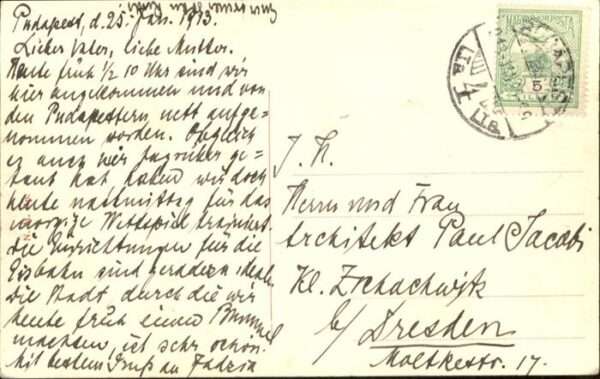 Budapest, d. 25. Jan. 1913.
Lieber Vater, liebe Mutter.
Heute früh 1/2 10 Uhr sind wir
hier angekommen und von
den Budapestern nett aufge=
nommen worden. Obgleich
es auch hier ge=
taut hat haben wir doch
heute nachmittag für das
morgige Wettspiel trainiert.
Die Einrichtungen für die
Eisbahn sind geradezu ideale.
Die Stadt durch die wir
heute früh einen Bummel
machten, ist sehr schön.
Mit bestem Gruß an
MAGYAR KIR. POSTA
5
4
LTB.
J. H.
Herrn und Frau
Architekt Paul Jacobi
Kl. Zschachwitz
b/ Dresden
Moltkestr. 17.